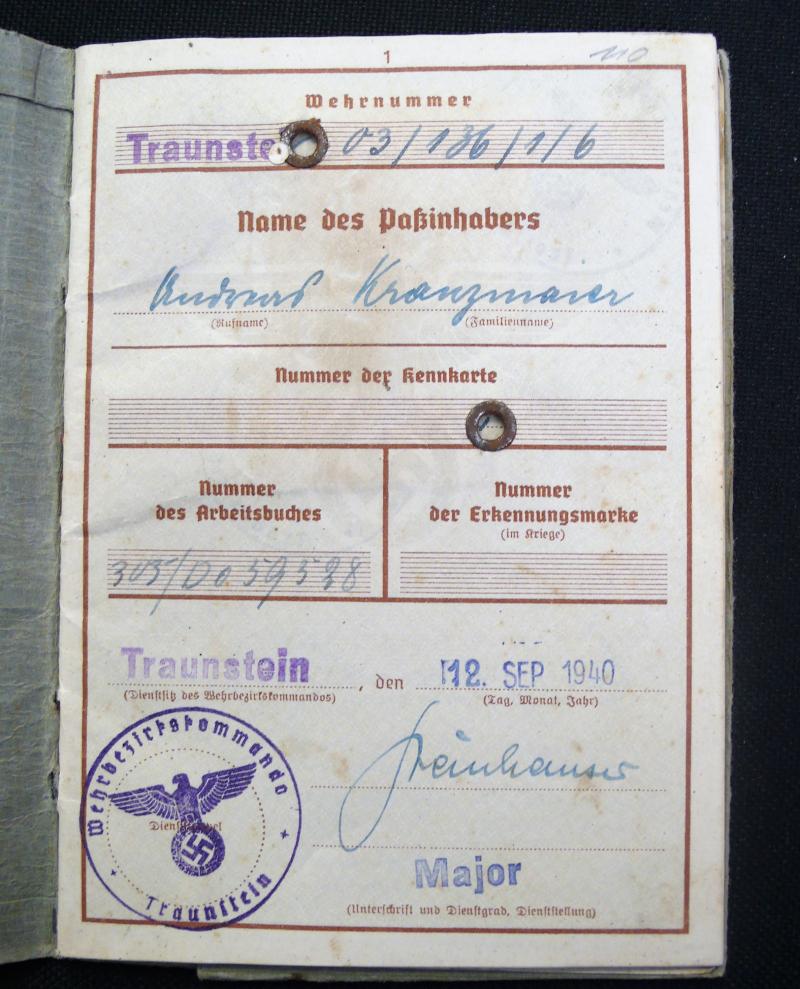 1
110
Wehrnummer
Traunste 03/136/1/6
Name des Paßinhabers
Andreas Kranzmaier
(Rufname) (Familienname)
Nummer der Kennkarte
Nummer des Arbeitsbuches
303/Do 59528
Nummer der Erkennungsmarke
(im Kriege)
Traunstein, den 12. SEP 1940
(Dienstsitz des Wehrbezirkskommandos) (Tag, Monat, Jahr)
Wehrbezirkskommando
Traunstein
Major
(Unterschrift und Dienstgrad, Dienststellung)